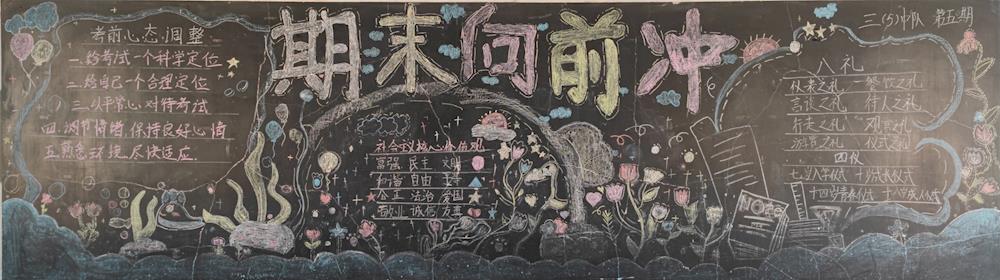 期末向前冲
三(5)中队 第五期
考前心态调整
一.给考试一个科学定位
二.给自己一个合理定位
三.以平常心对待考试
四.调节情绪,保持良好心情
五.熟悉环境,尽快适应
社会主义核心价值观
富强 民主 文明
和谐 自由 平等
公正 法治 爱国
敬业 诚信 友善
八礼
仪表之礼 餐饮之礼
言谈之礼 待人之礼
行走之礼 观赏之礼
游览之礼 仪式之礼
四仪
七岁入学仪式 十岁成长仪式
十四岁青春仪式 十八岁成人仪式
NOTE